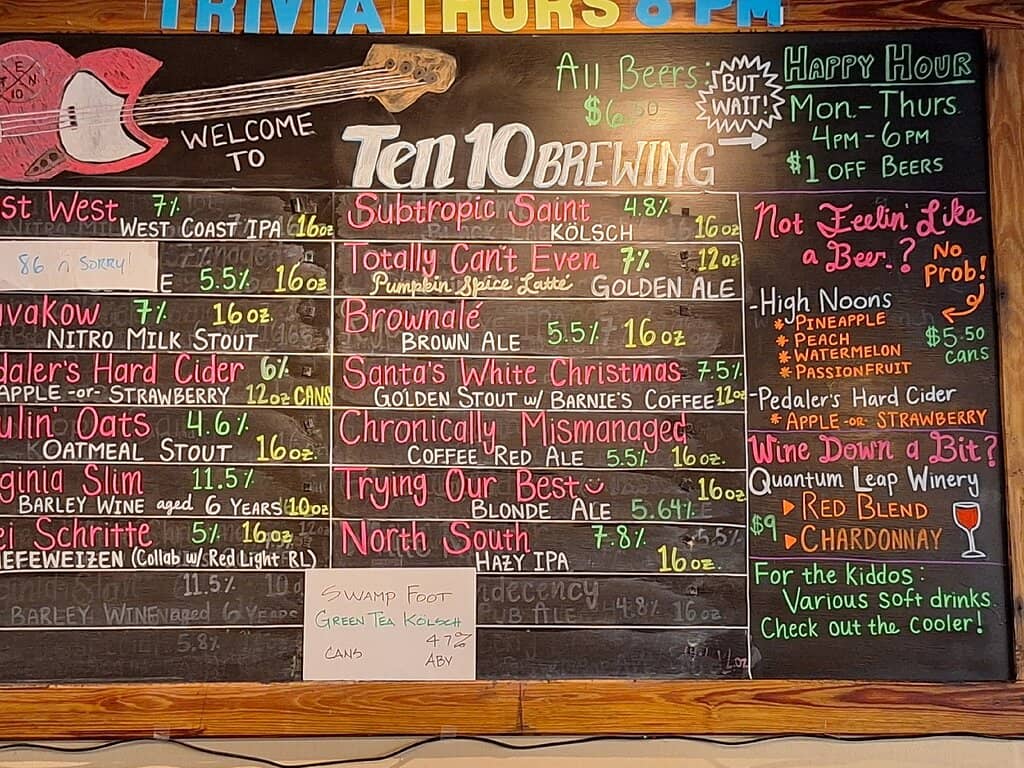 TRIVIA THURS 8 PM
TEN
10
WELCOME
TO
Ten 10 BREWING
All Beers:
$6.50
BUT
WAIT!
HAPPY HOUR
MON.-THURS.
4PM-6PM
$1 OFF BEERS
st West 7%
WEST COAST IPA 16oz
86 SORRY!
E 5.5% 16oz
vakow 7% 16oz.
NITRO MILK STOUT
daler's Hard Cider 6%
APPLE -or- STRAWBERRY 12oz CANS
ulin' Oats 4.6%
OATMEAL STOUT 16oz.
ginia Slim 11.5%
BARLEY WINE aged 6 YEARS 10oz
ei Schritte 5% 16oz
HEFEWEIZEN (Collab w/ Red Light RL)
11.5%
BARLEY WINE aged 6 Years
5.8%
Subtropic Saint 4.8%
KÖLSCH 16oz
Totally Can't Even 7% 12oz
Pumpkin Spice Latté GOLDEN ALE
Brownalé
BROWN ALE 5.5% 16oz
Santa's White Christmas 7.5%
GOLDEN STOUT w/ BARNIE'S COFFEE 12oz
Chronically Mismanaged
COFFEE RED ALE 5.5% 16oz.
Trying Our Best 16oz
BLONDE ALE 5.64%
North South 7.8%
HAZY IPA 16oz.
decency
UB ALE 4.8% 16oz
SWAMP FOOT
GREEN TEA KÖLSCH
4.7%
CANS ABV
Not Feelin' Like
a Beer.?
No
Prob!
-High Noons
* PINEAPPLE
* PEACH
* WATERMELON
* PASSIONFRUIT
$5.50
cans
-Pedaler's Hard Cider
* APPLE -OR- STRAWBERRY
Wine Down a Bit?
Quantum Leap Winery
$9
▸ RED BLEND
▸ CHARDONNAY
For the kiddos:
Various soft drinks.
Check out the cooler!